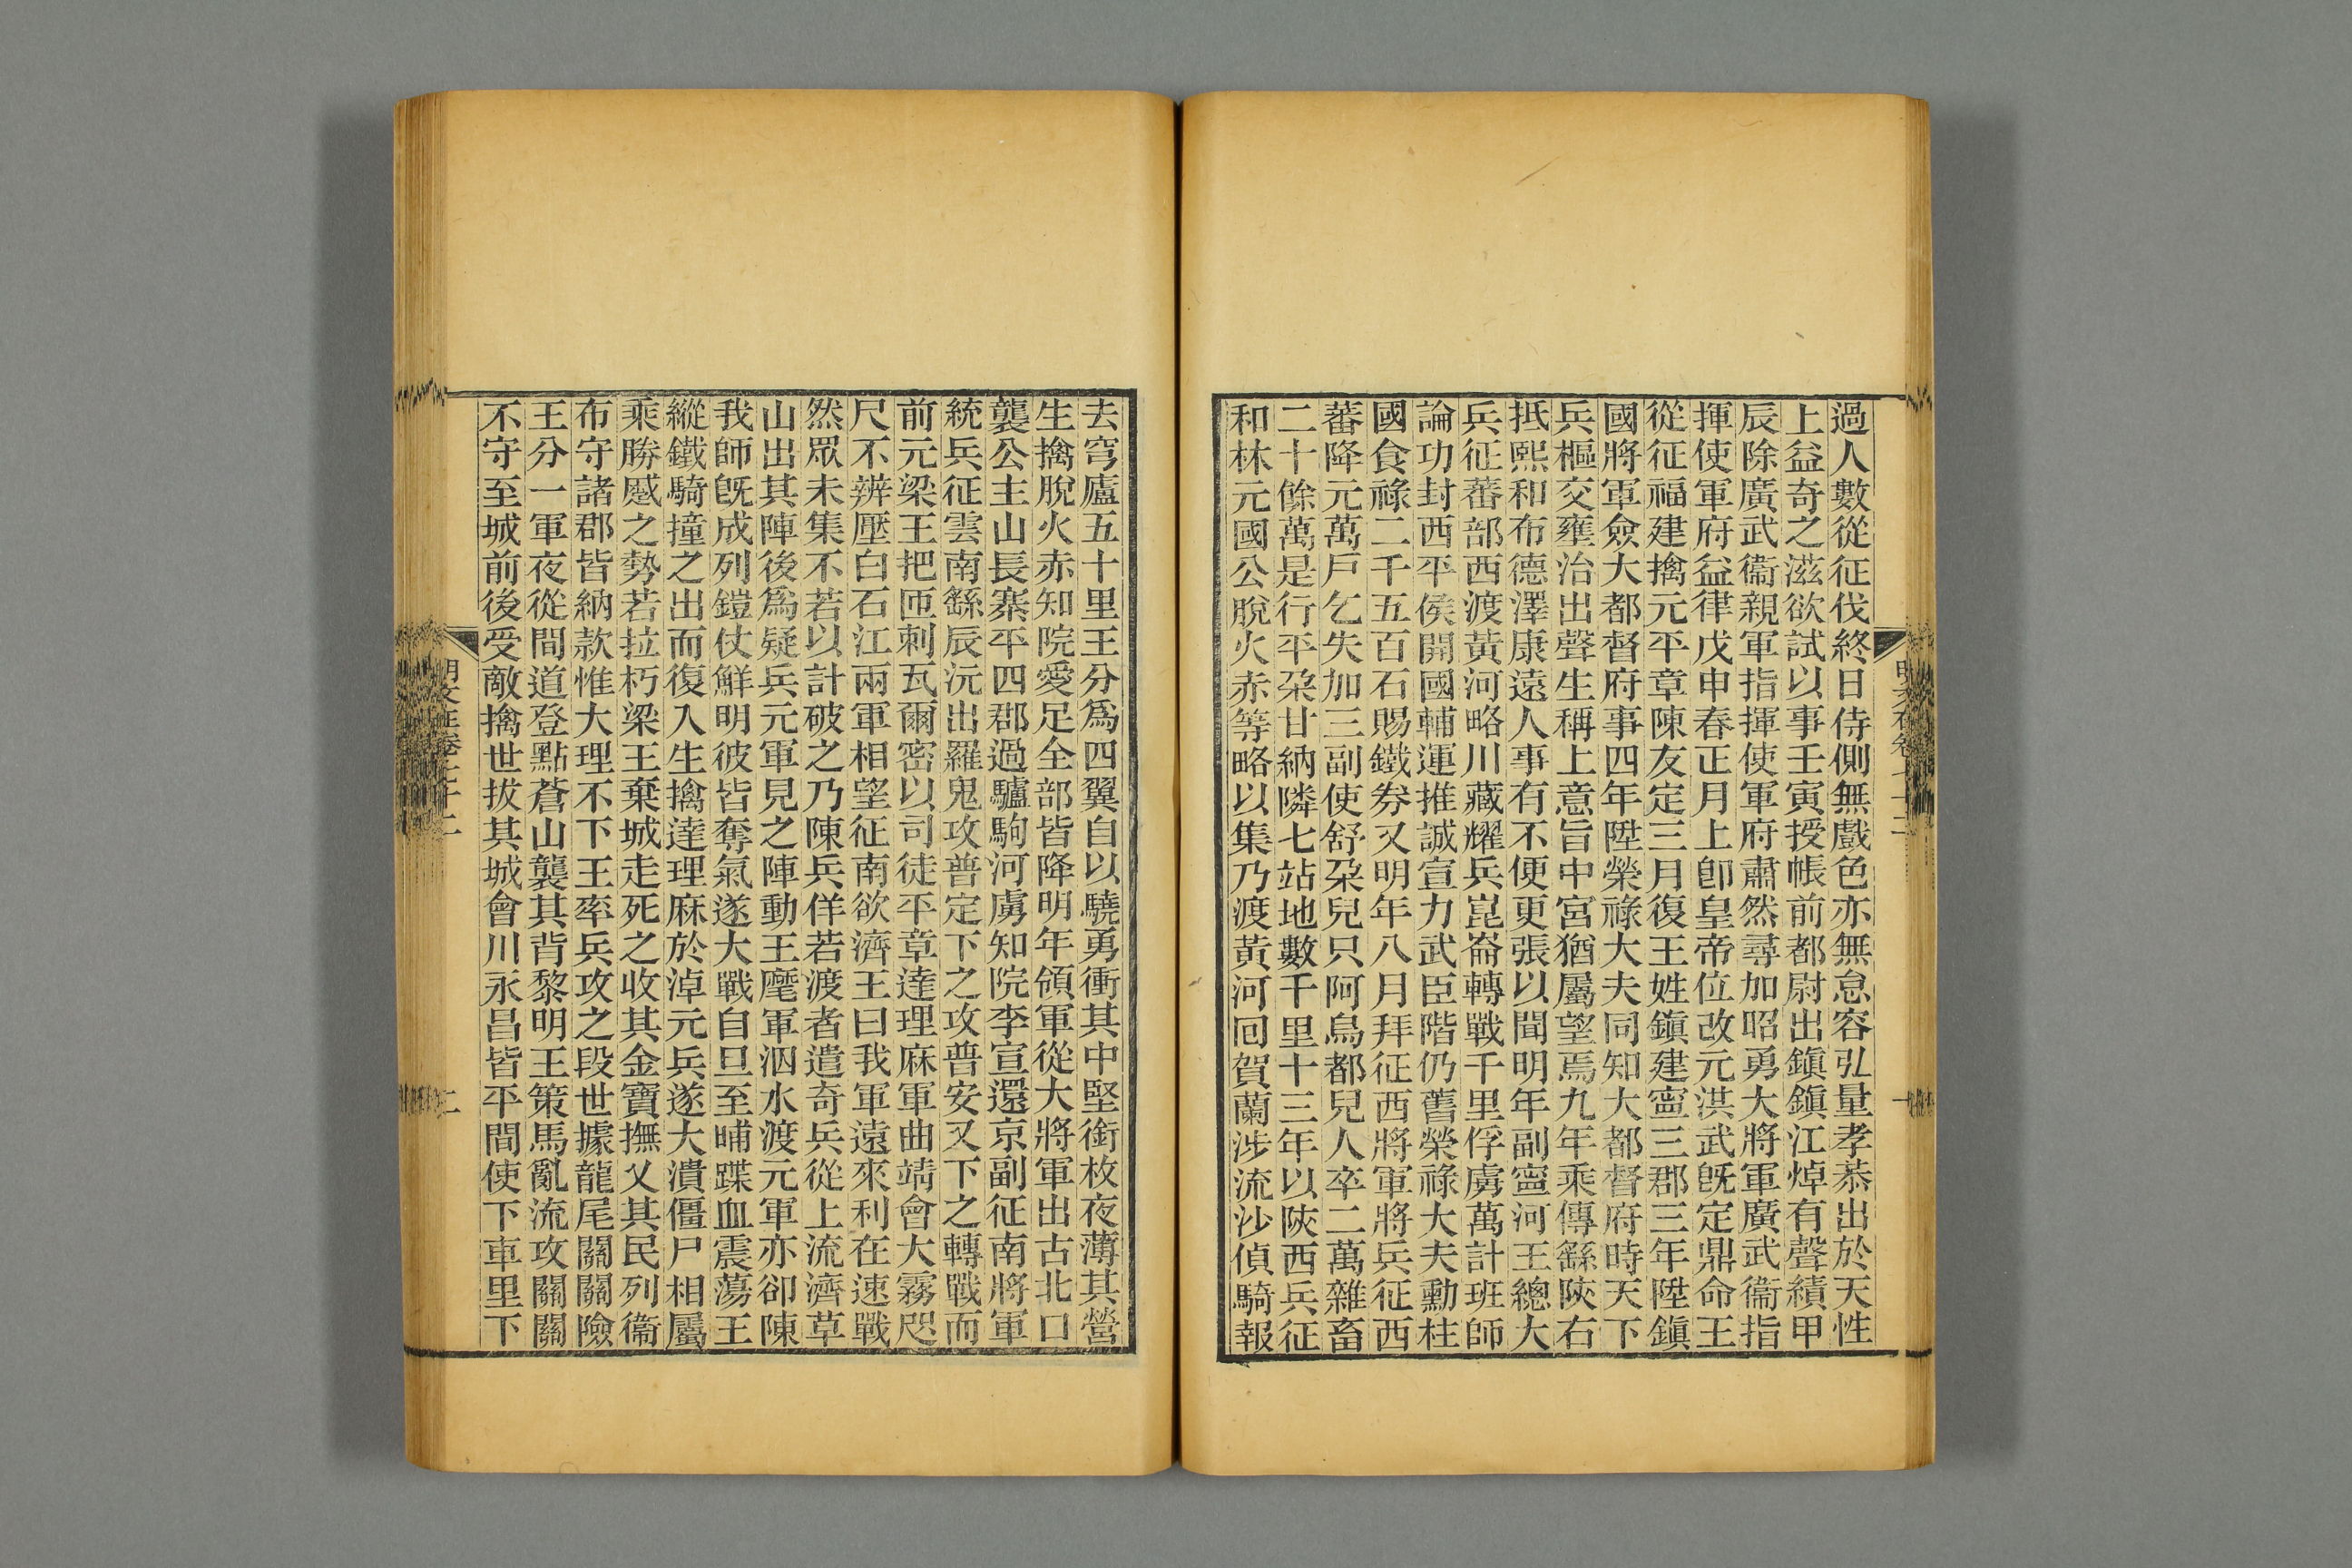 過人數從征伐終日侍側無戲色亦無怠容弘量孝恭出於天性
上益奇之滋欲試以事壬寅授帳前都尉出鎮鎮江焯有聲績甲
辰除廣武衞親軍指揮使軍府肅然尋加昭勇大將軍廣武衞指
揮使軍府益律戊申春正月上卽皇帝位改元洪武旣定鼎命王
從征福建擒元平章陳友定三月復王姓鎮建寍三郡三年陞鎮
國將軍僉大都督府事四年陞榮祿大夫同知大都督府時天下
兵樞交壅治出聲生稱上意旨中宮猶屬望焉九年乘傳繇陝右
抵熙和布德澤康遠人事有不便更張以聞明年副寍河王總大
兵征蕃部西渡黃河略川藏耀兵崑崙轉戰千里俘虜萬計班師
論功封西平侯開國輔運推誠宣力武臣階仍舊榮祿大夫勳柱
國食祿二千五百石賜鐵券又明年八月拜征西將軍將兵征西
蕃降元萬戶乞失加三副使舒朶兒只阿烏都兒人卒二萬雜畜
二十餘萬是行平朶甘納隣七站地數千里十三年以陝西兵征
和林元國公脫火赤等略以集乃渡黃河回賀蘭涉流沙偵騎報
去穹廬五十里王分爲四翼自以驍勇衝其中堅銜枚夜薄其營
生擒脫火赤知院愛足全部皆降明年領軍從大將軍出古北口
襲公主山長寨平四郡過驢駒河虜知院李宣還京副征南將軍
統兵征雲南繇辰沅出羅鬼攻普定下之攻普安又下之轉戰而
前元梁王把匝剌瓦爾密以司徒平章達理麻軍曲靖會大霧咫
尺不辨壓白石江兩軍相望征南欲濟王曰我軍遠來利在速戰
然眾未集不若以計破之乃陳兵佯若渡者遣奇兵從上流濟草
山出其陣後爲疑兵元軍見之陣動王麾軍泅水渡元軍亦卻陳
我師旣成列鎧仗鮮明彼皆奪氣遂大戰自旦至晡蹀血震蕩王
縱鐵騎撞之出而復入生擒達理麻於淖元兵遂大潰僵尸相屬
乘勝蹙之勢若拉朽梁王棄城走死之收其金寶撫乂其民列衞
布守諸郡皆納款惟大理不下王率兵攻之段世據龍尾關關險
王分一軍夜從間道登點蒼山襲其背黎明王策馬亂流攻關關
不守至城前後受敵擒世拔其城會川永昌皆平間使下車里下
二